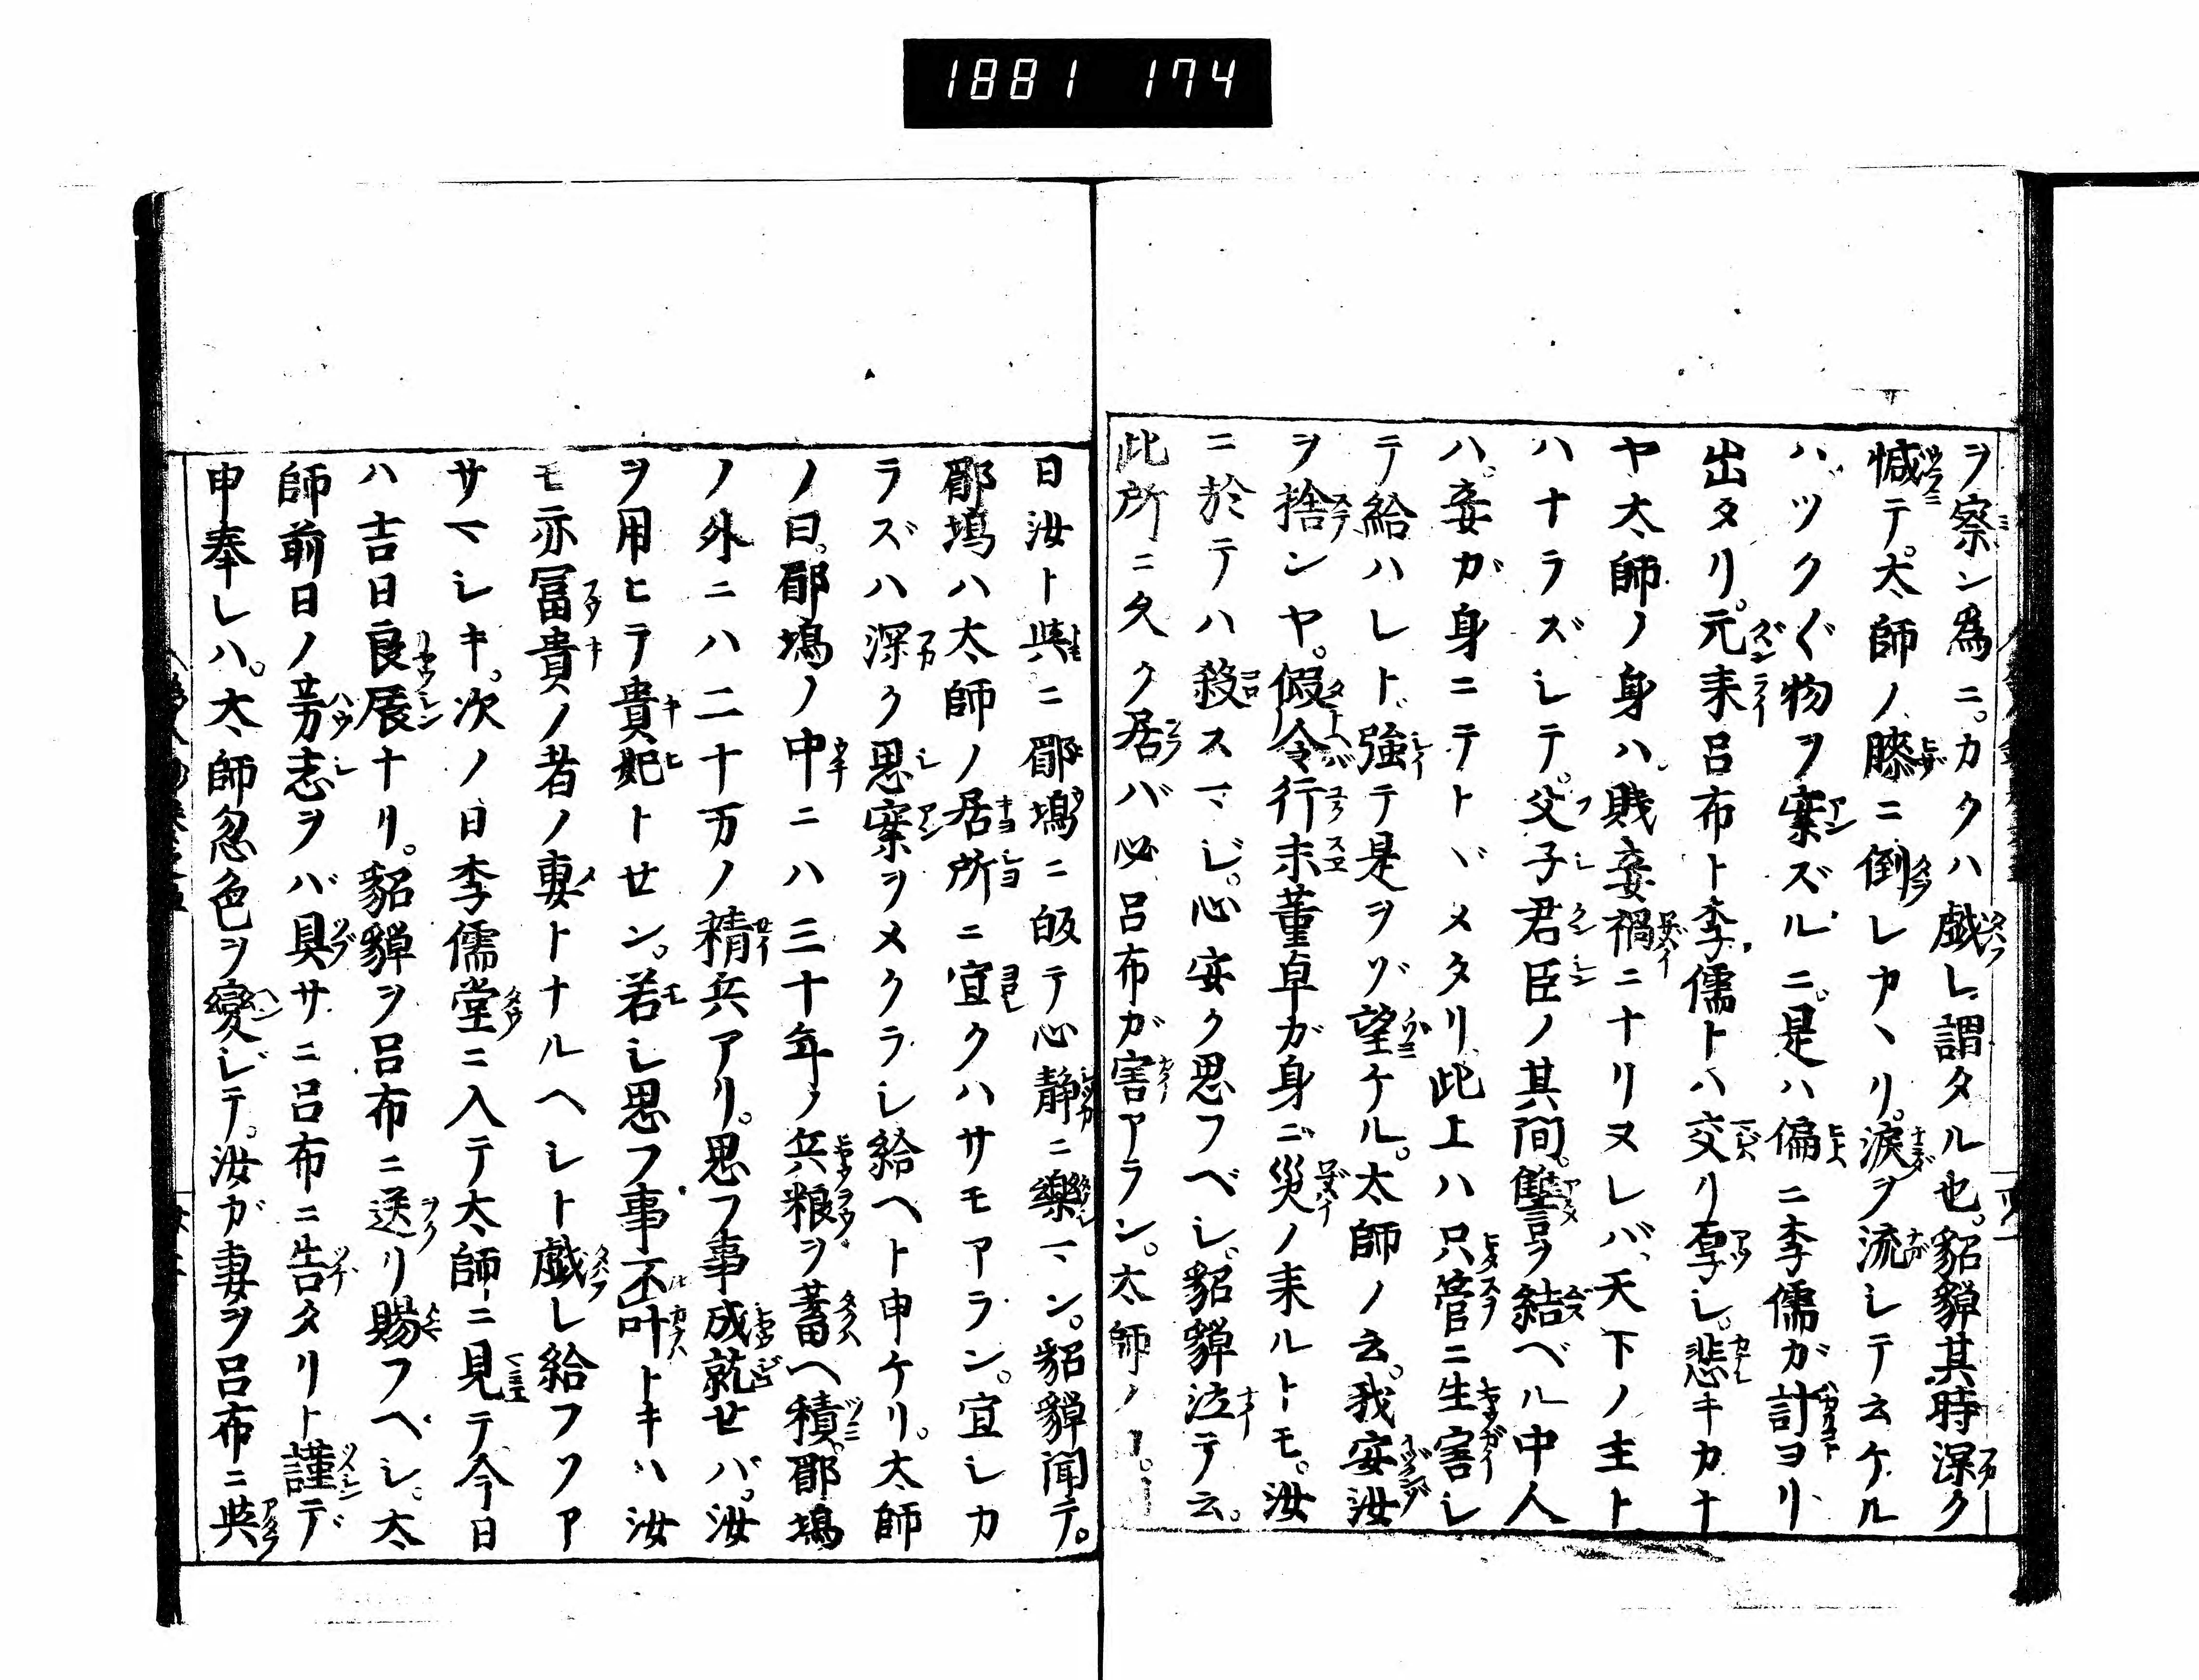 1881 174
ヲ察ン為ニ。カクハ戯レ謂タル也。貂蟬其時深ク
慽テ。太師ノ膝ニ倒レカヽリ。淚ヲ流レテ云ケル
ハ。ツク〲物ヲ案ズルニ。是ハ偏ニ李儒ガ計ヨリ
出タリ。元来呂布ト李儒トハ交リ厚シ。悲キカナ
ヤ太師ノ身ハ。賎妾禍ニナリヌレバ、天下ノ主ト
ハナラズシテ。父子君臣ノ其間。讐ヲ結ベル中人
ハ。妾ガ身ニテトヾメタリ。此上ハ只管ニ生害シ
テ給ハレト。強テ是ヲゾ望ケル。太師ノ云。我安汝
ヲ捨ンヤ。假令行末董卓ガ身ニ災ノ来ルトモ。汝
ニ於テハ殺スマジ。心安ク思フベシ。貂蟬泣テ云。
此所ニ久ク居バ必呂布ガ害アラン。太師ノ
日汝ト與ニ郿塢ニ皈テ心静ニ樂マン。貂蟬聞テ。
郿塢ハ太師ノ居所ニ宜クハサモアラン。宜シカ
ラズハ深ク思案ヲメクラシ給ヘト申ケリ。太師
ノ曰。郿塢ノ中ニハ三十年ノ兵粮ヲ蓄ヘ積。郿塢
ノ外ニハ二十万ノ精兵アリ。思フ事成就せバ。汝
ヲ用ヒテ貴妃トせン。若シ思フ事不叶トキハ汝
モ亦冨貴ノ者ノ妻トナルヘシト戯シ給フソア
サマシキ。次ノ日李儒堂ニ入テ太師ニ見テ今日
ハ吉日良辰ナリ。貂蟬ヲ呂布ニ送リ賜フヘシ。太
師前日ノ芳志ヲバ具サニ呂布ニ告タリト謹デ
申奉レハ。太師忽色ヲ變ジテ。汝ガ妻ヲ呂布ニ與